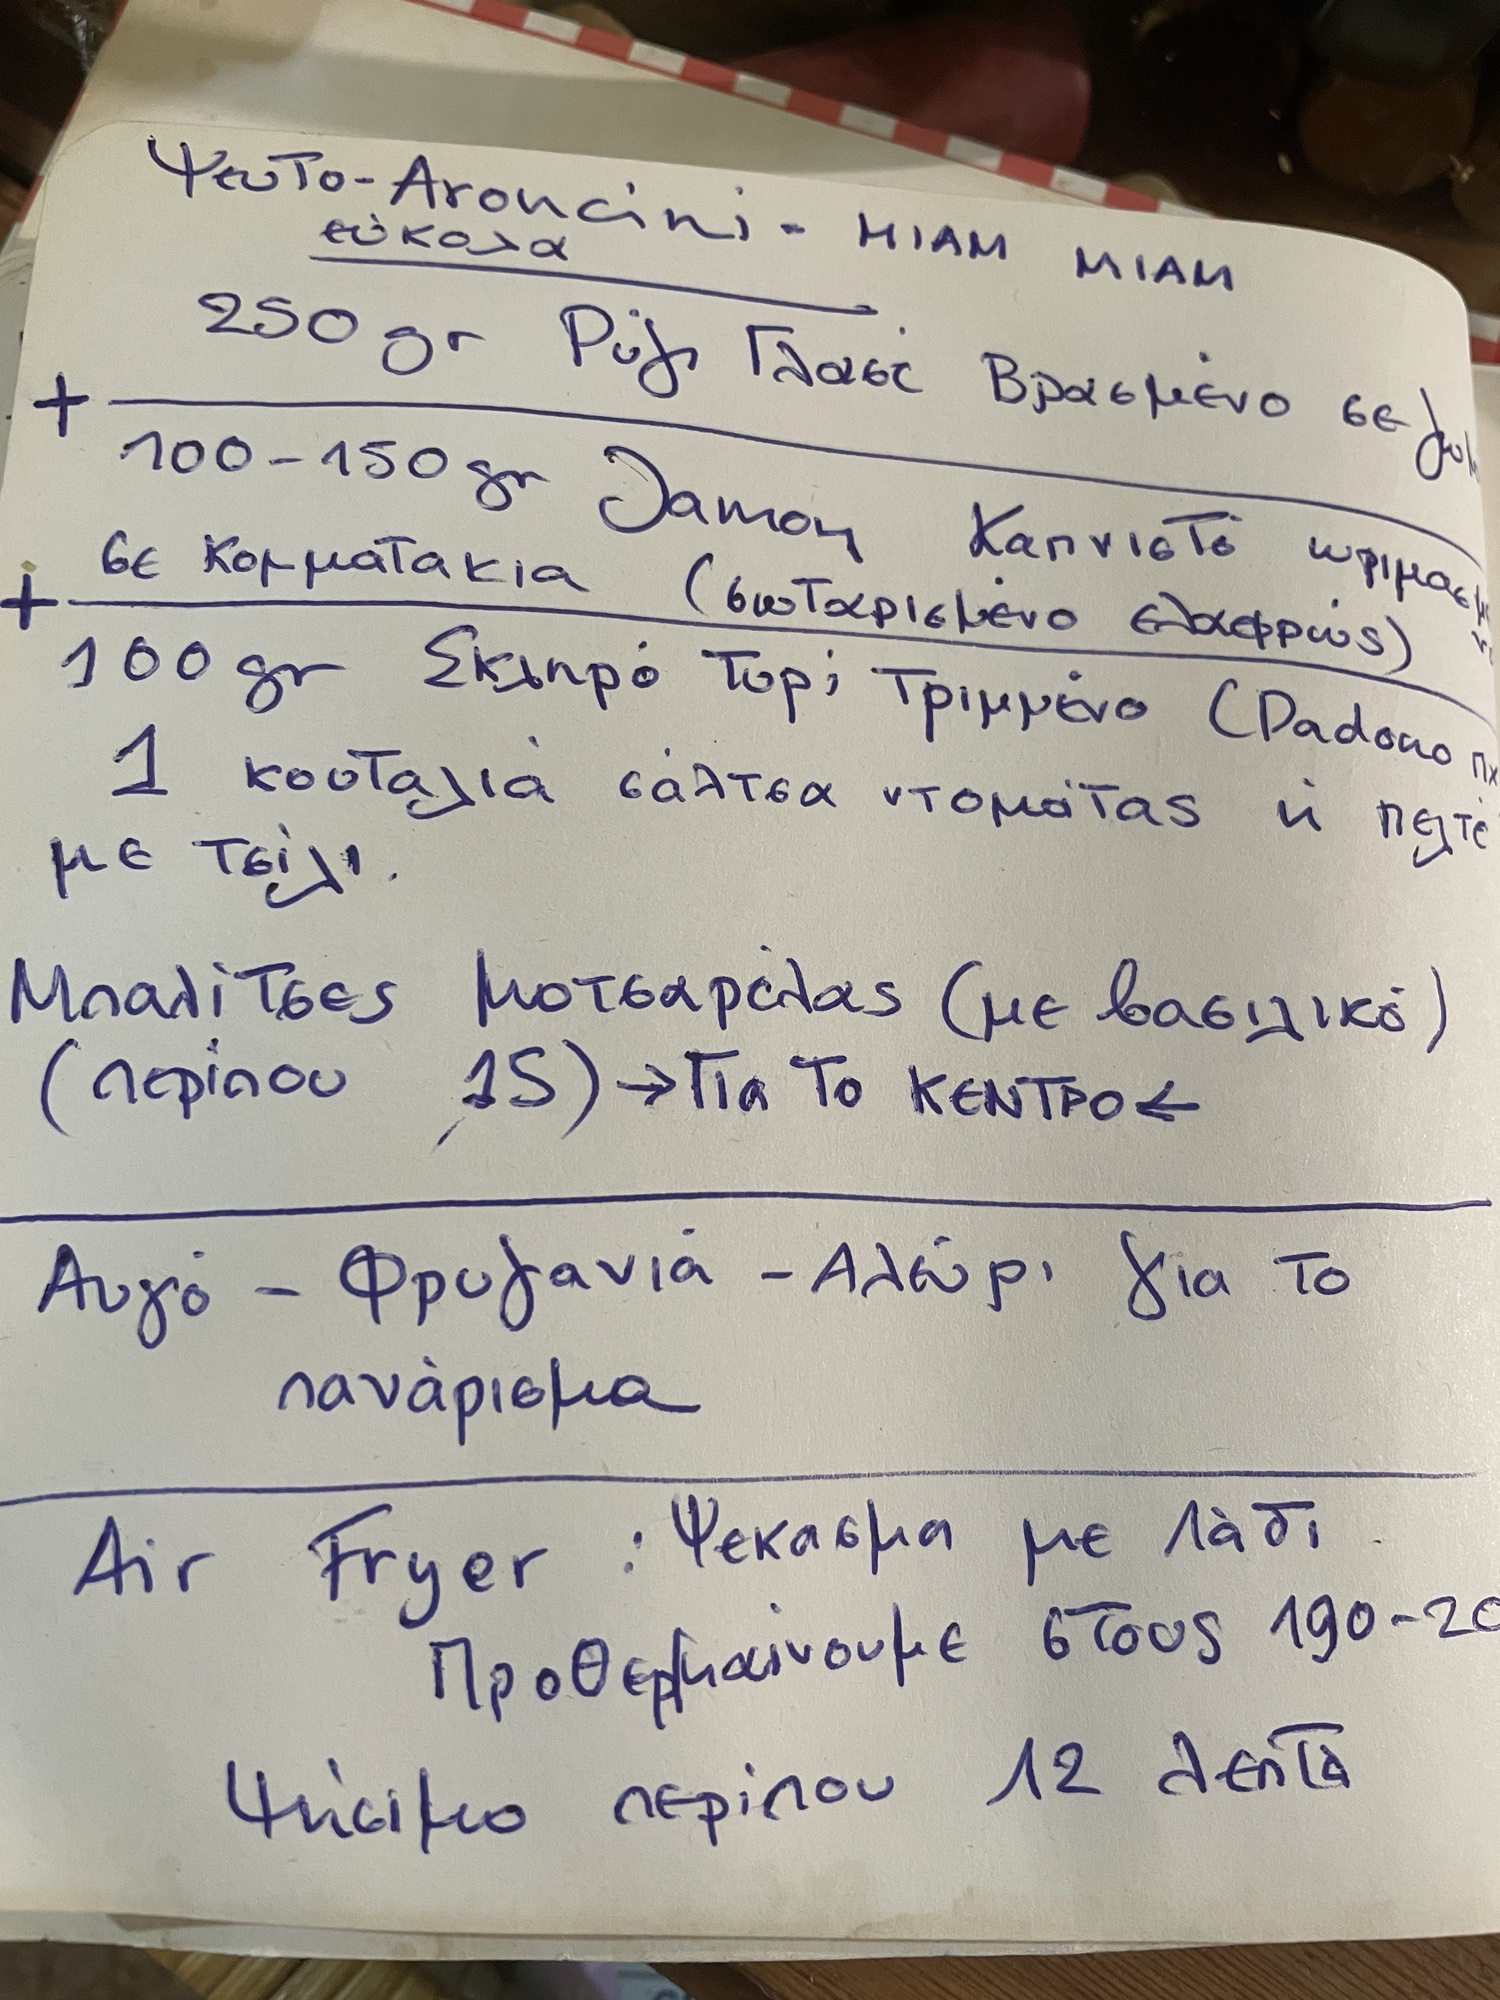 Ψευτο-Aroncini - MIAM MIAM
εύκολα
250 gr Ρύζι Γλασέ Βρασμένο σε
+
100-150 gr Jamon Καπνιστό
σε κομματάκια (σωταρισμένο ελαφρώς)
+
100 gr Σκληρό τυρί τριμμένο (Dadono πχ
1 κουταλιά σάλτσα ντομάτας ή πελτέ
με τσίλι.
Μπαλίτσες μοτσαρέλας (με βασιλικό)
(περίπου 15) → Για το ΚΕΝΤΡΟ ←
Αυγό - Φρυγανιά - Αλεύρι για το
πανάρισμα
Air Fryer : Ψεκασμα με λάδι
Προθερμαίνουμε στους 190-20
Ψήσιμο περίπου 12 λεπτά